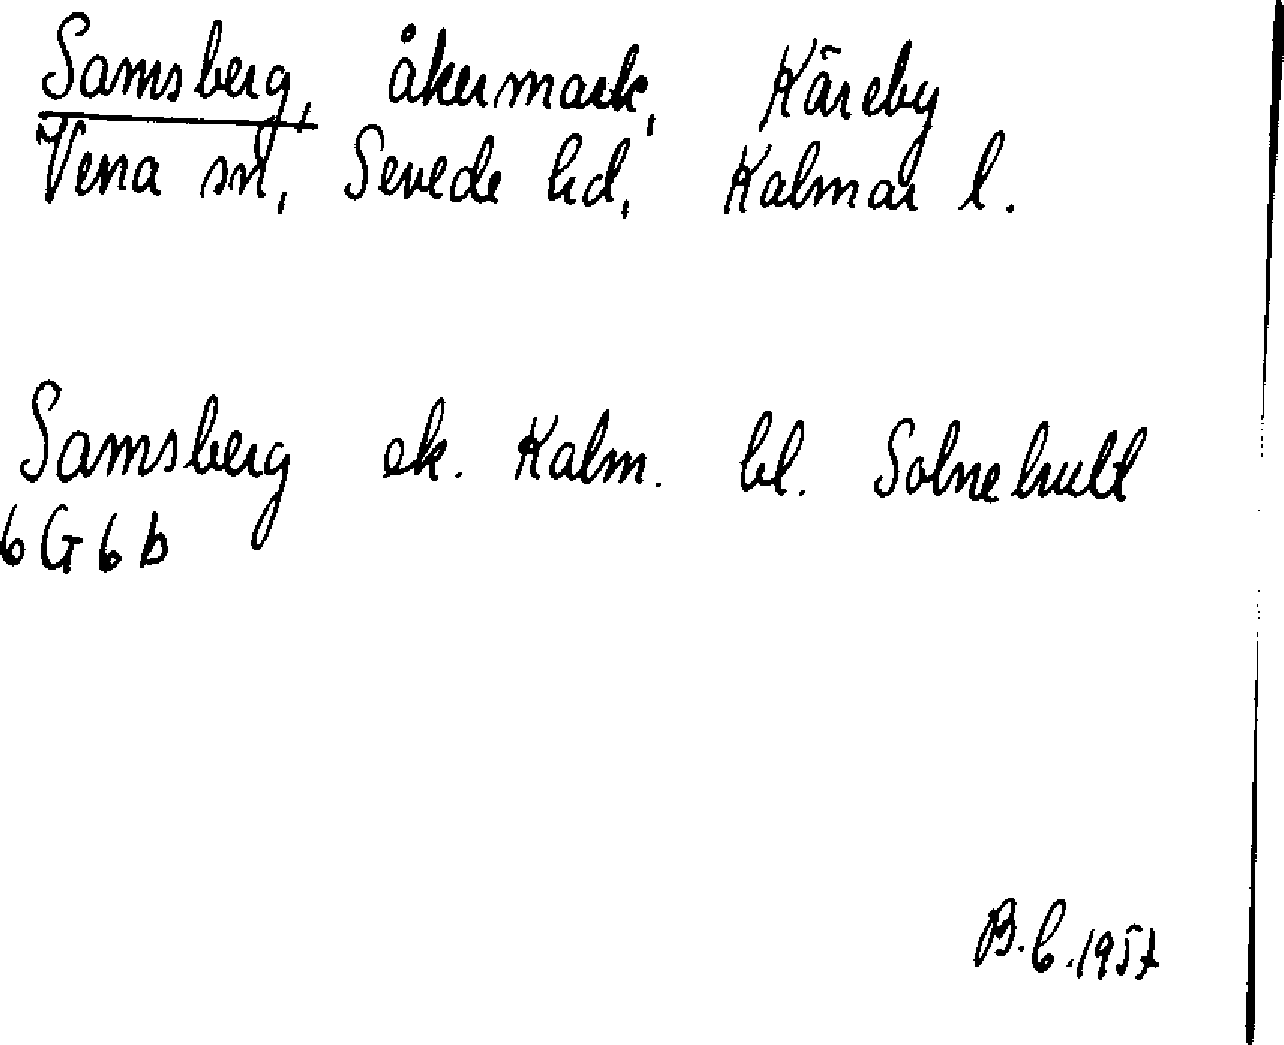 Samsberg, åkermark, Käreby
Vena sn, Sevede hd, Kalmar l.
Samsberg ek. Kalm. bl. Solnehult
6G6b
B.C.1957